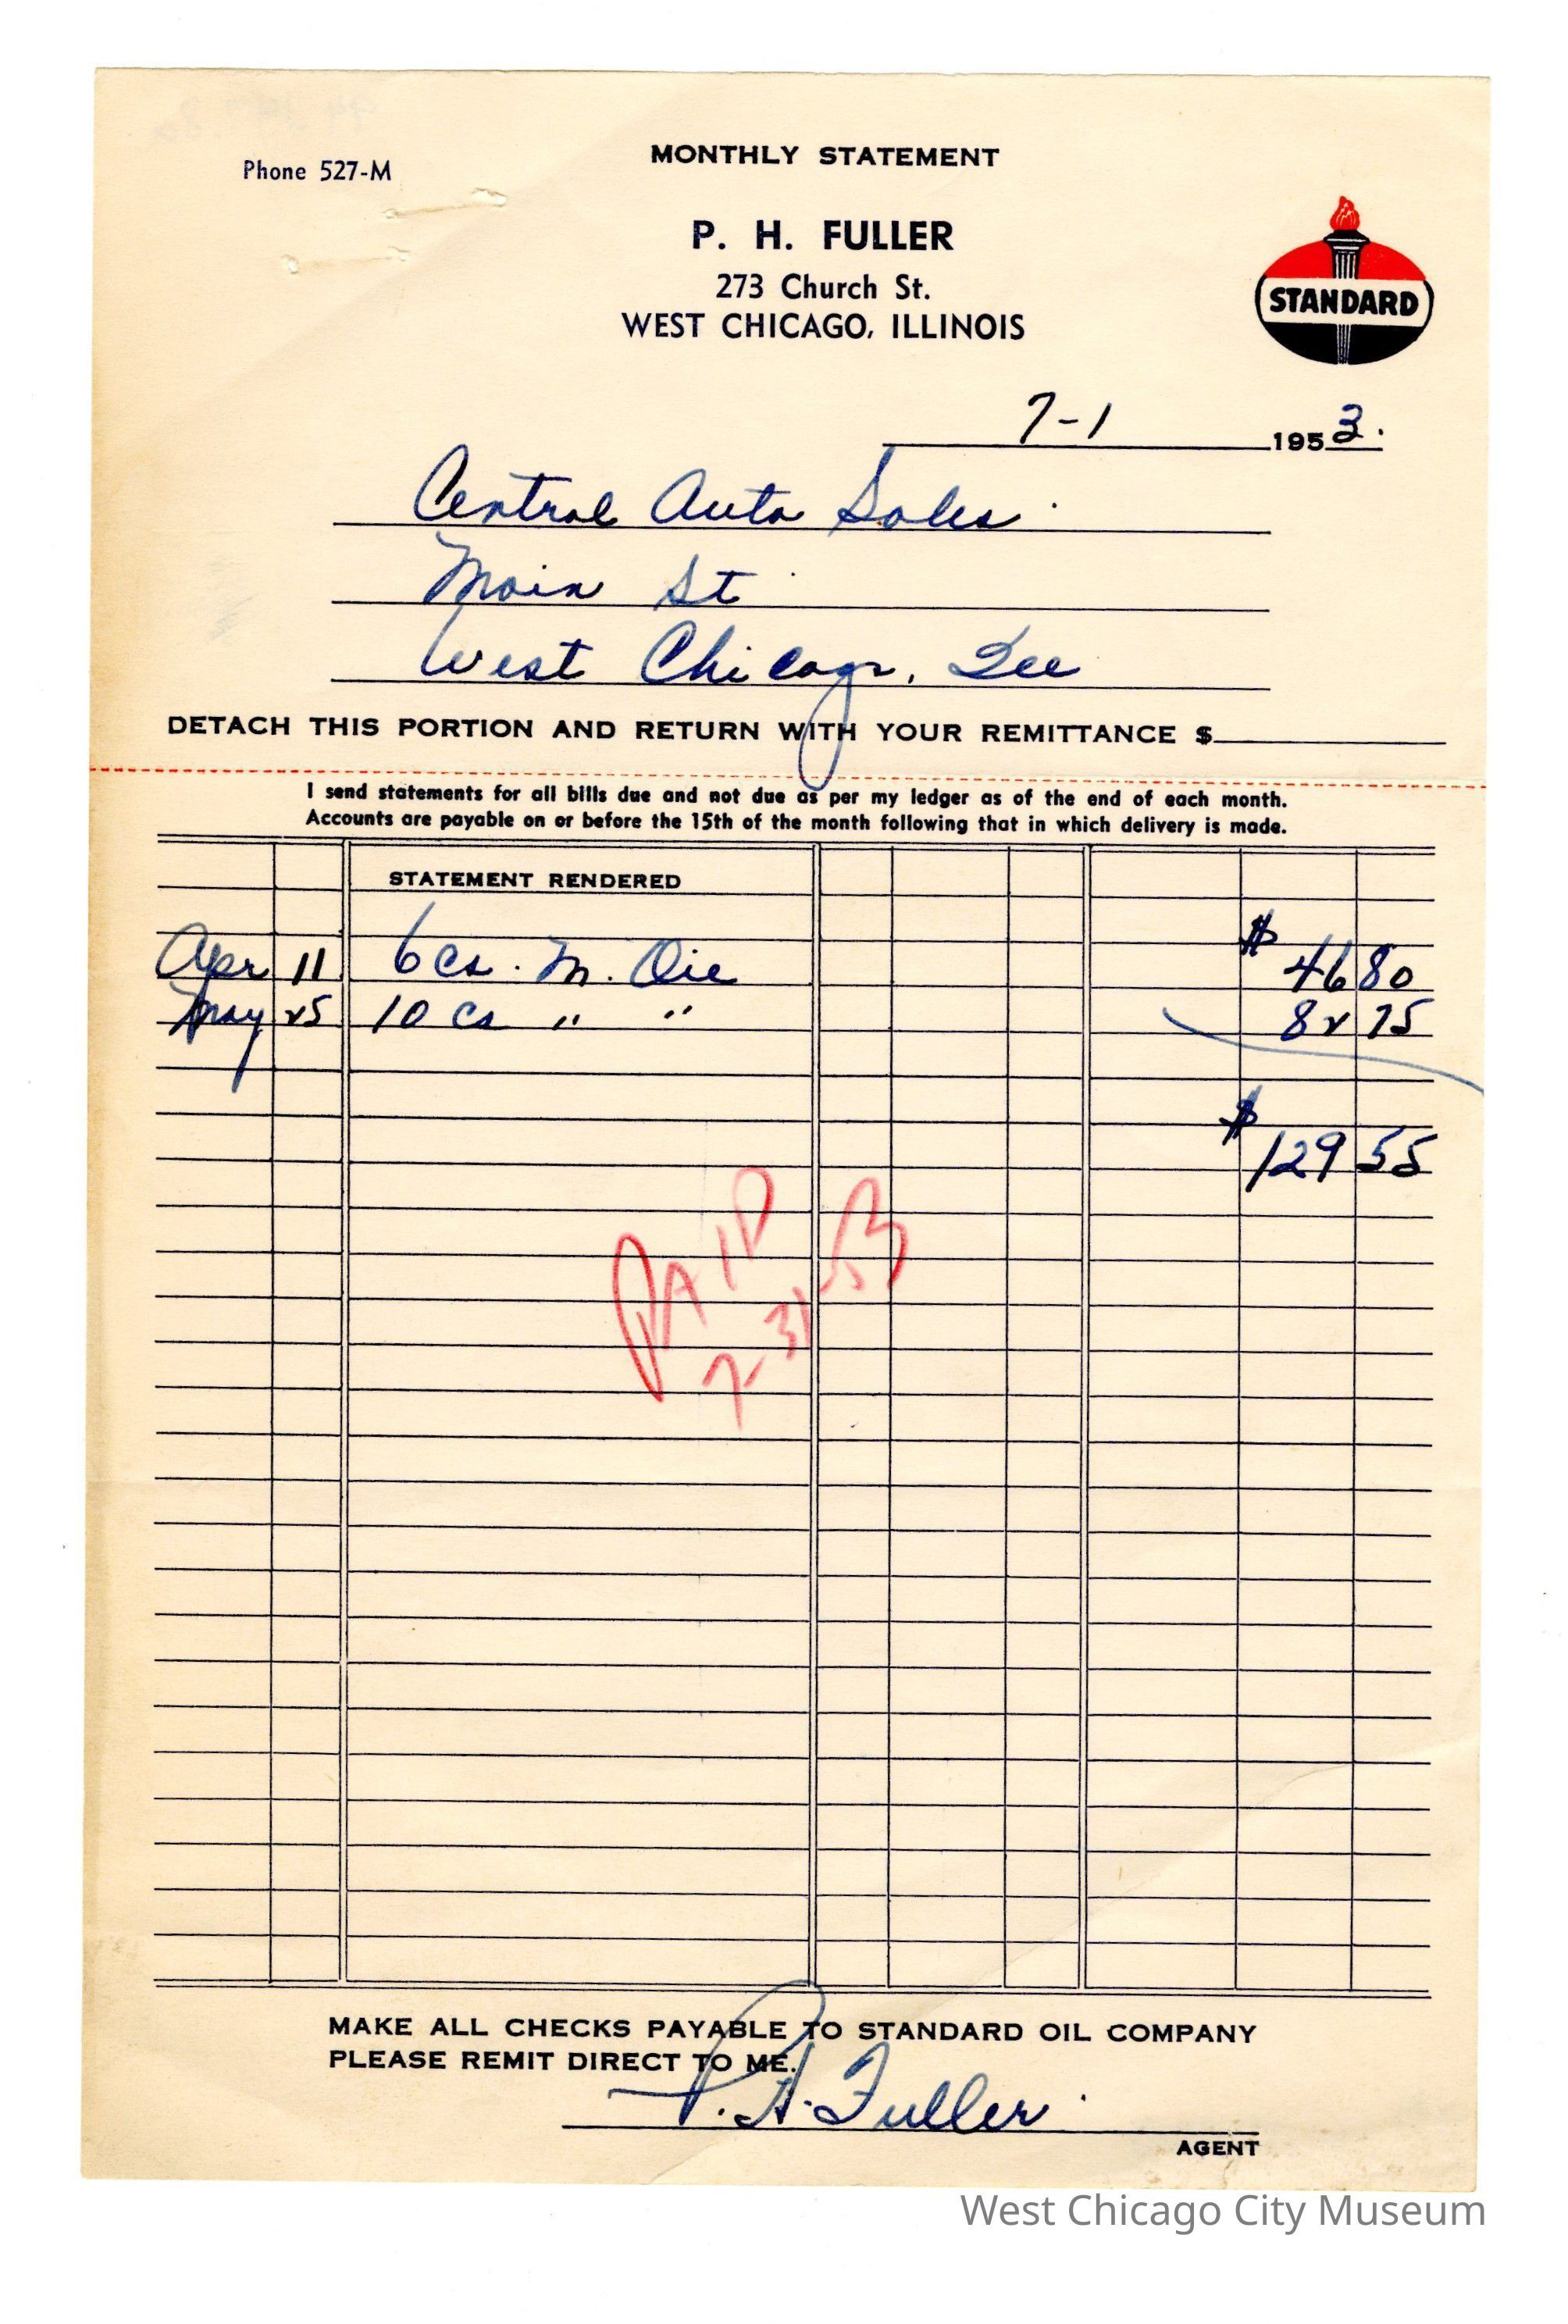 Phone 527-M
MONTHLY STATEMENT
P. H. FULLER
273 Church St.
WEST CHICAGO, ILLINOIS
STANDARD
7-1 1953.
Central Auto Sales
Main St
West Chicago, Ill
DETACH THIS PORTION AND RETURN WITH YOUR REMITTANCE $
I send statements for all bills due and not due as per my ledger as of the end of each month.
Accounts are payable on or before the 15th of the month following that in which delivery is made.
STATEMENT RENDERED
Apr 11 6 cs. M. Oil $ 46 80
May 25 10 cs " " 82 75
$ 129 55
PAID
7-31-53
MAKE ALL CHECKS PAYABLE TO STANDARD OIL COMPANY
PLEASE REMIT DIRECT TO ME.
P. H. Fuller
AGENT
West Chicago City Museum